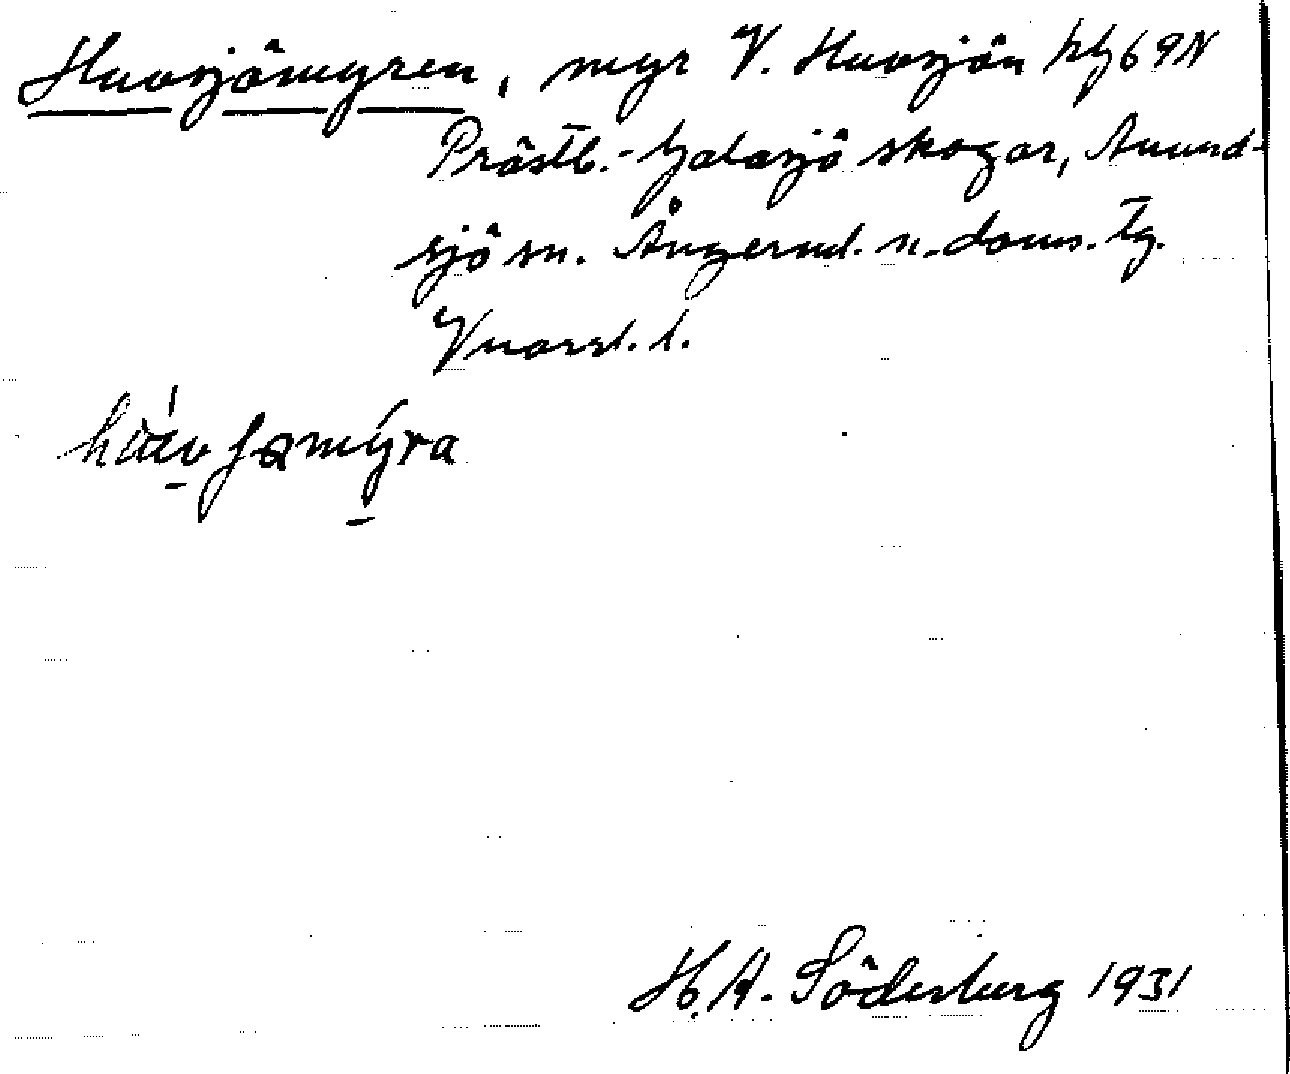 Huvsjömyren, myr V. Huvsjön hg 69N
Prästb.- Galasjö skogar, Anund-
sjö sn. Ångerml. n. doms. tg.
Vuarsl. l.
myra
H. A. Söderberg 1931